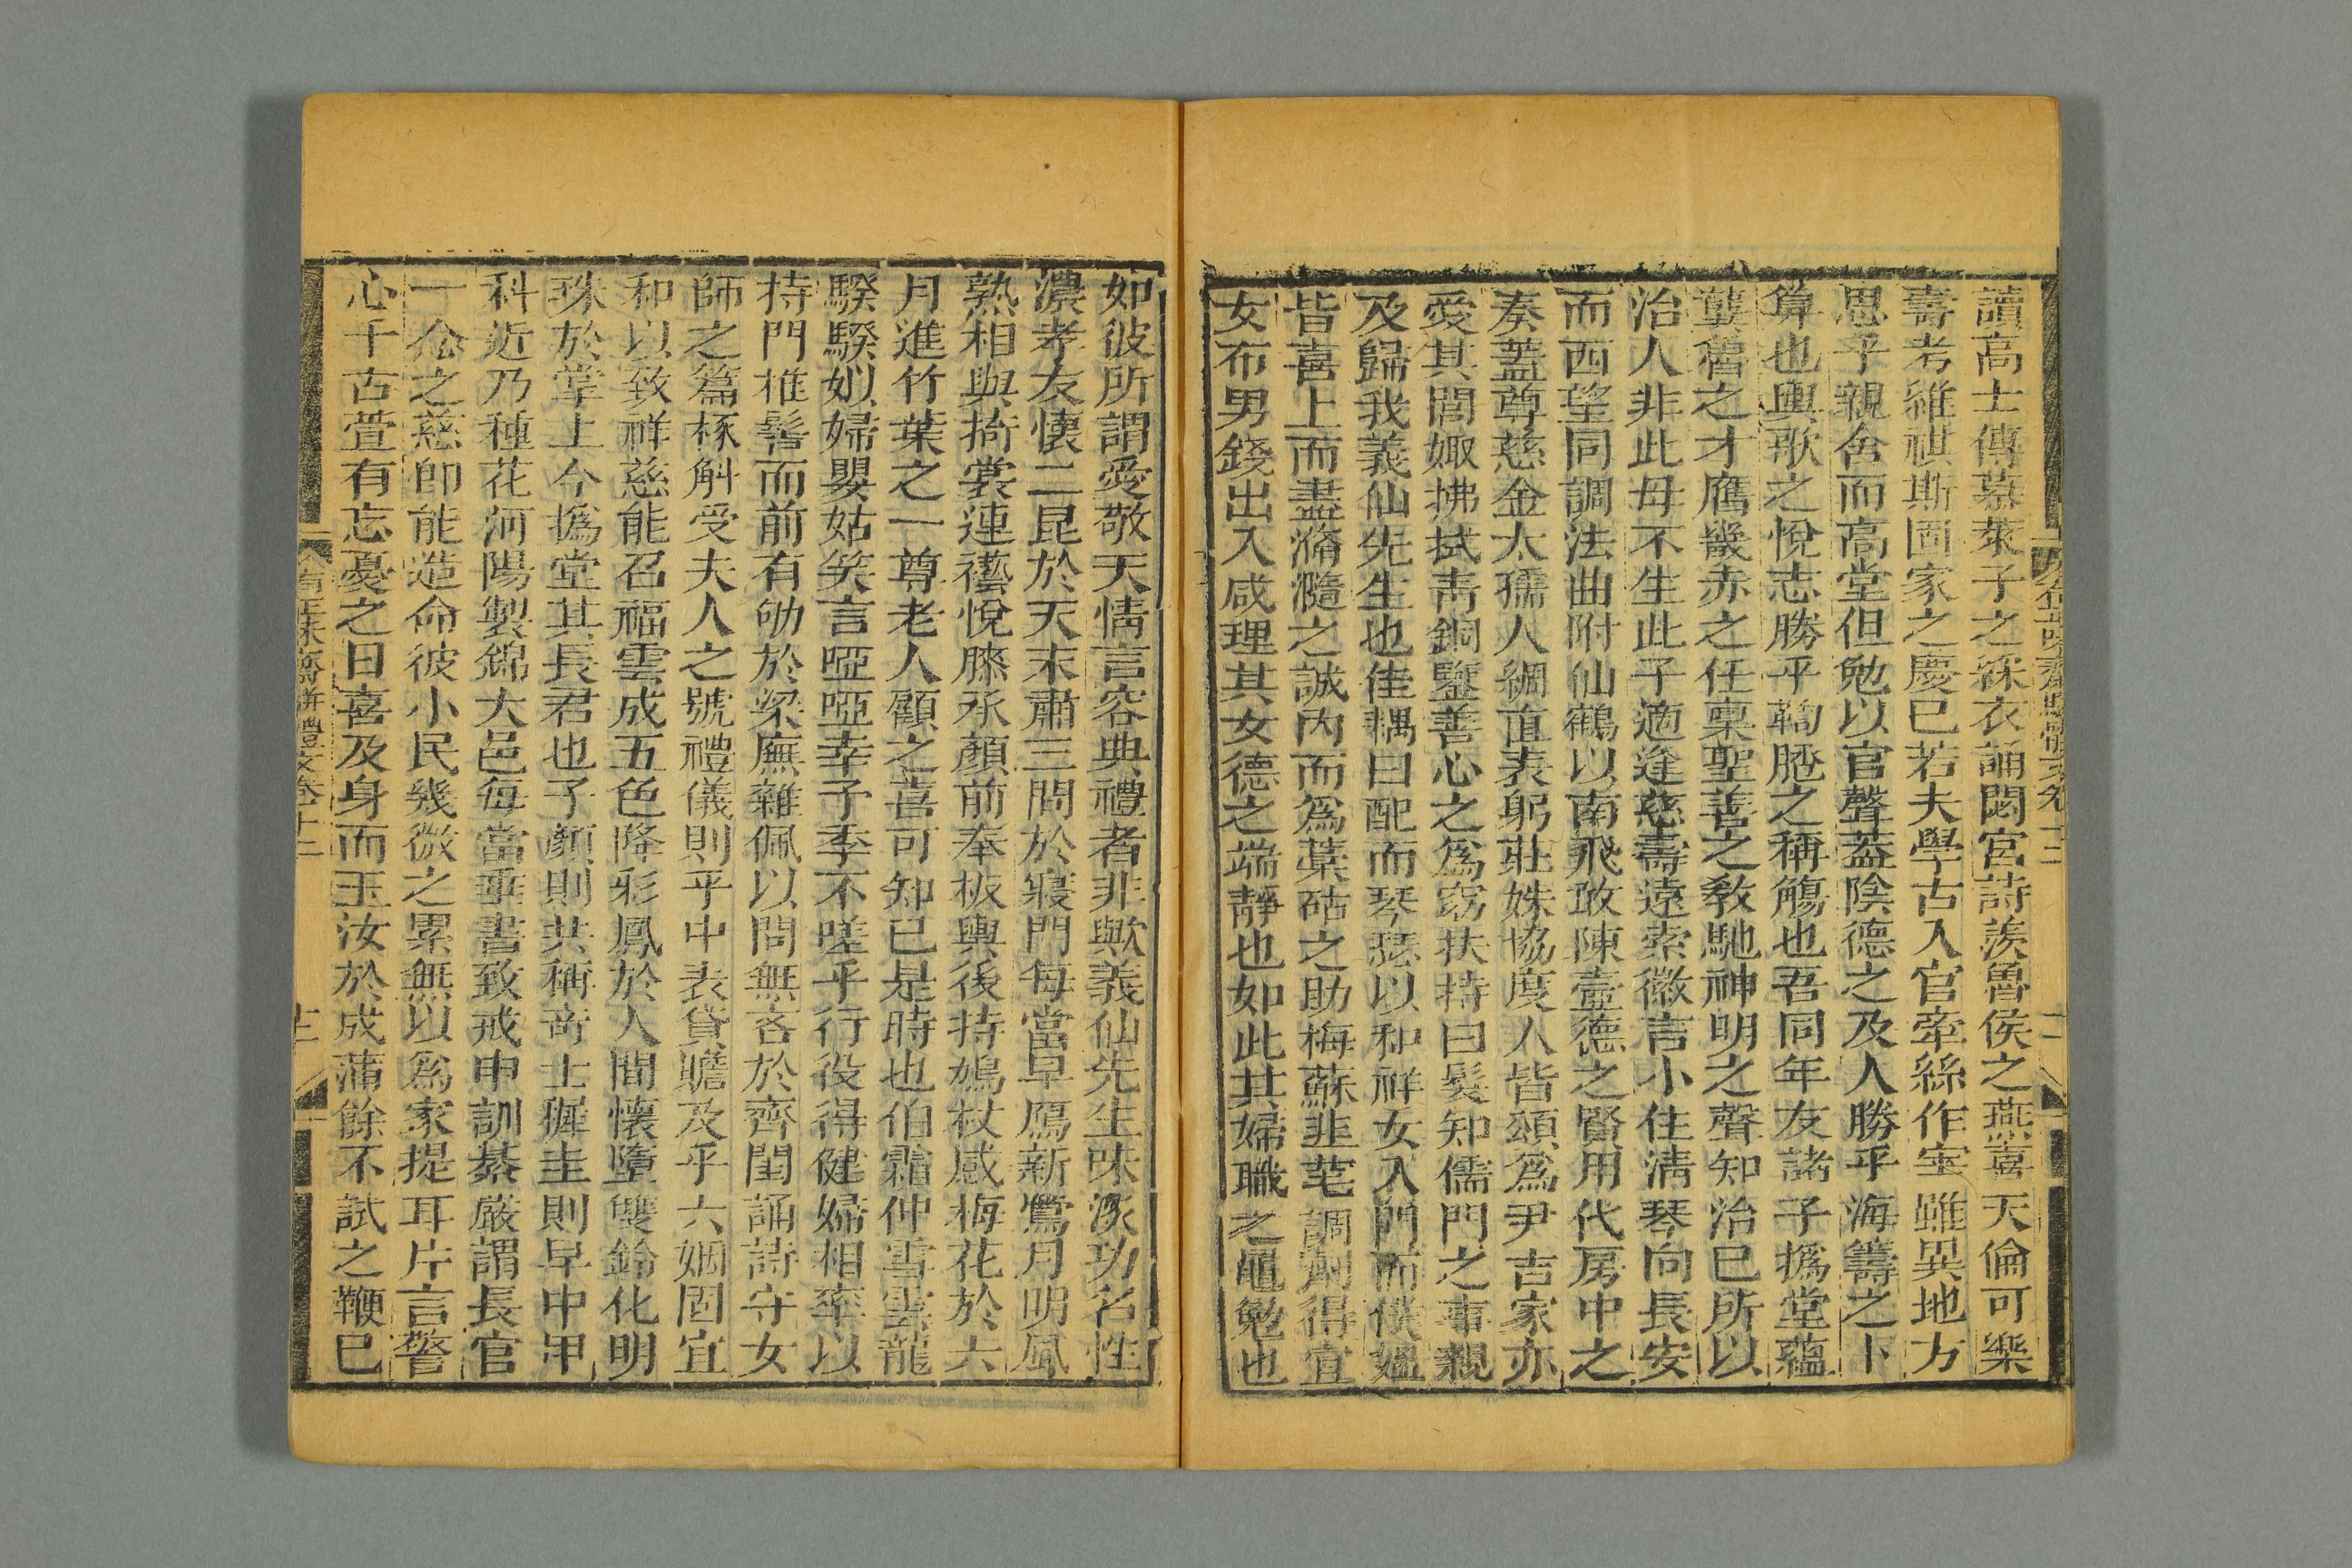 讀高士傳慕萊子之綵衣誦閟宮詩羨魯侯之燕喜天倫可樂
壽考維祺斯固家之慶已若夫學古入官牽絲作宰雖異地方
思乎親舍而高堂但勉以官聲蓋陰德之及人勝乎海籌之卜
算也輿歌之悅志勝乎鞠𦜕之稱觴也吾同年友諸子撝堂蘊
龔魯之才膺畿赤之任稟聖善之教馳神明之聲知治已所以
治人非此母不生此子適逢慈壽遠索徵言小住淸琴向長安
而西望同調法曲附仙鶴以南飛敢陳壼德之賢用代房中之
奏蓋尊慈金太孺人綢直表躬莊姝協度人皆頌爲尹吉家亦
愛其閭娵拂拭靑銅鑒善心之爲窈扶持曰髮知儒門之事親
及歸我義仙先生也佳耦曰配而琴瑟以和祥女入門而僕媼
皆喜上而盡滫瀡之誠內而爲藁砧之助梅蘇韭芼調劑得宜
女布男錢出入咸理其女德之端靜也如此其婦職之黽勉也
如彼所謂愛敬天情言容典禮者非歟義仙先生味淡功名性
濃孝友懷二昆於天末肅三問於寢門每當早鴈新鶯月明風
熟相與掎裳連襼悅膝承顏前奉板輿後持鳩杖感梅花於六
月進竹葉之一尊老人顧之喜可知已是時也伯霜仲雪雲龍
騤騤姒婦嬰姑笑言啞啞幸予季不嗟乎行役得健婦相率以
持門椎髻而前有劬於梁廡雜佩以問無吝於齊閨誦詩守女
師之篇椓斛受夫人之號禮儀則乎中表貸贍及乎六姻固宜
和以致祥慈能召福雲成五色降彩鳳於人間懷墮雙鈴化明
珠於掌上今撝堂其長君也子顏則共稱奇士穉圭則早中甲
科近乃種花河陽製錦大邑每當垂書致戒申訓綦嚴謂長官
一念之慈卽能造命彼小民幾微之累無以爲家提耳片言警
心千古萱有忘憂之日喜及身而玉汝於成蒲餘不試之鞭已